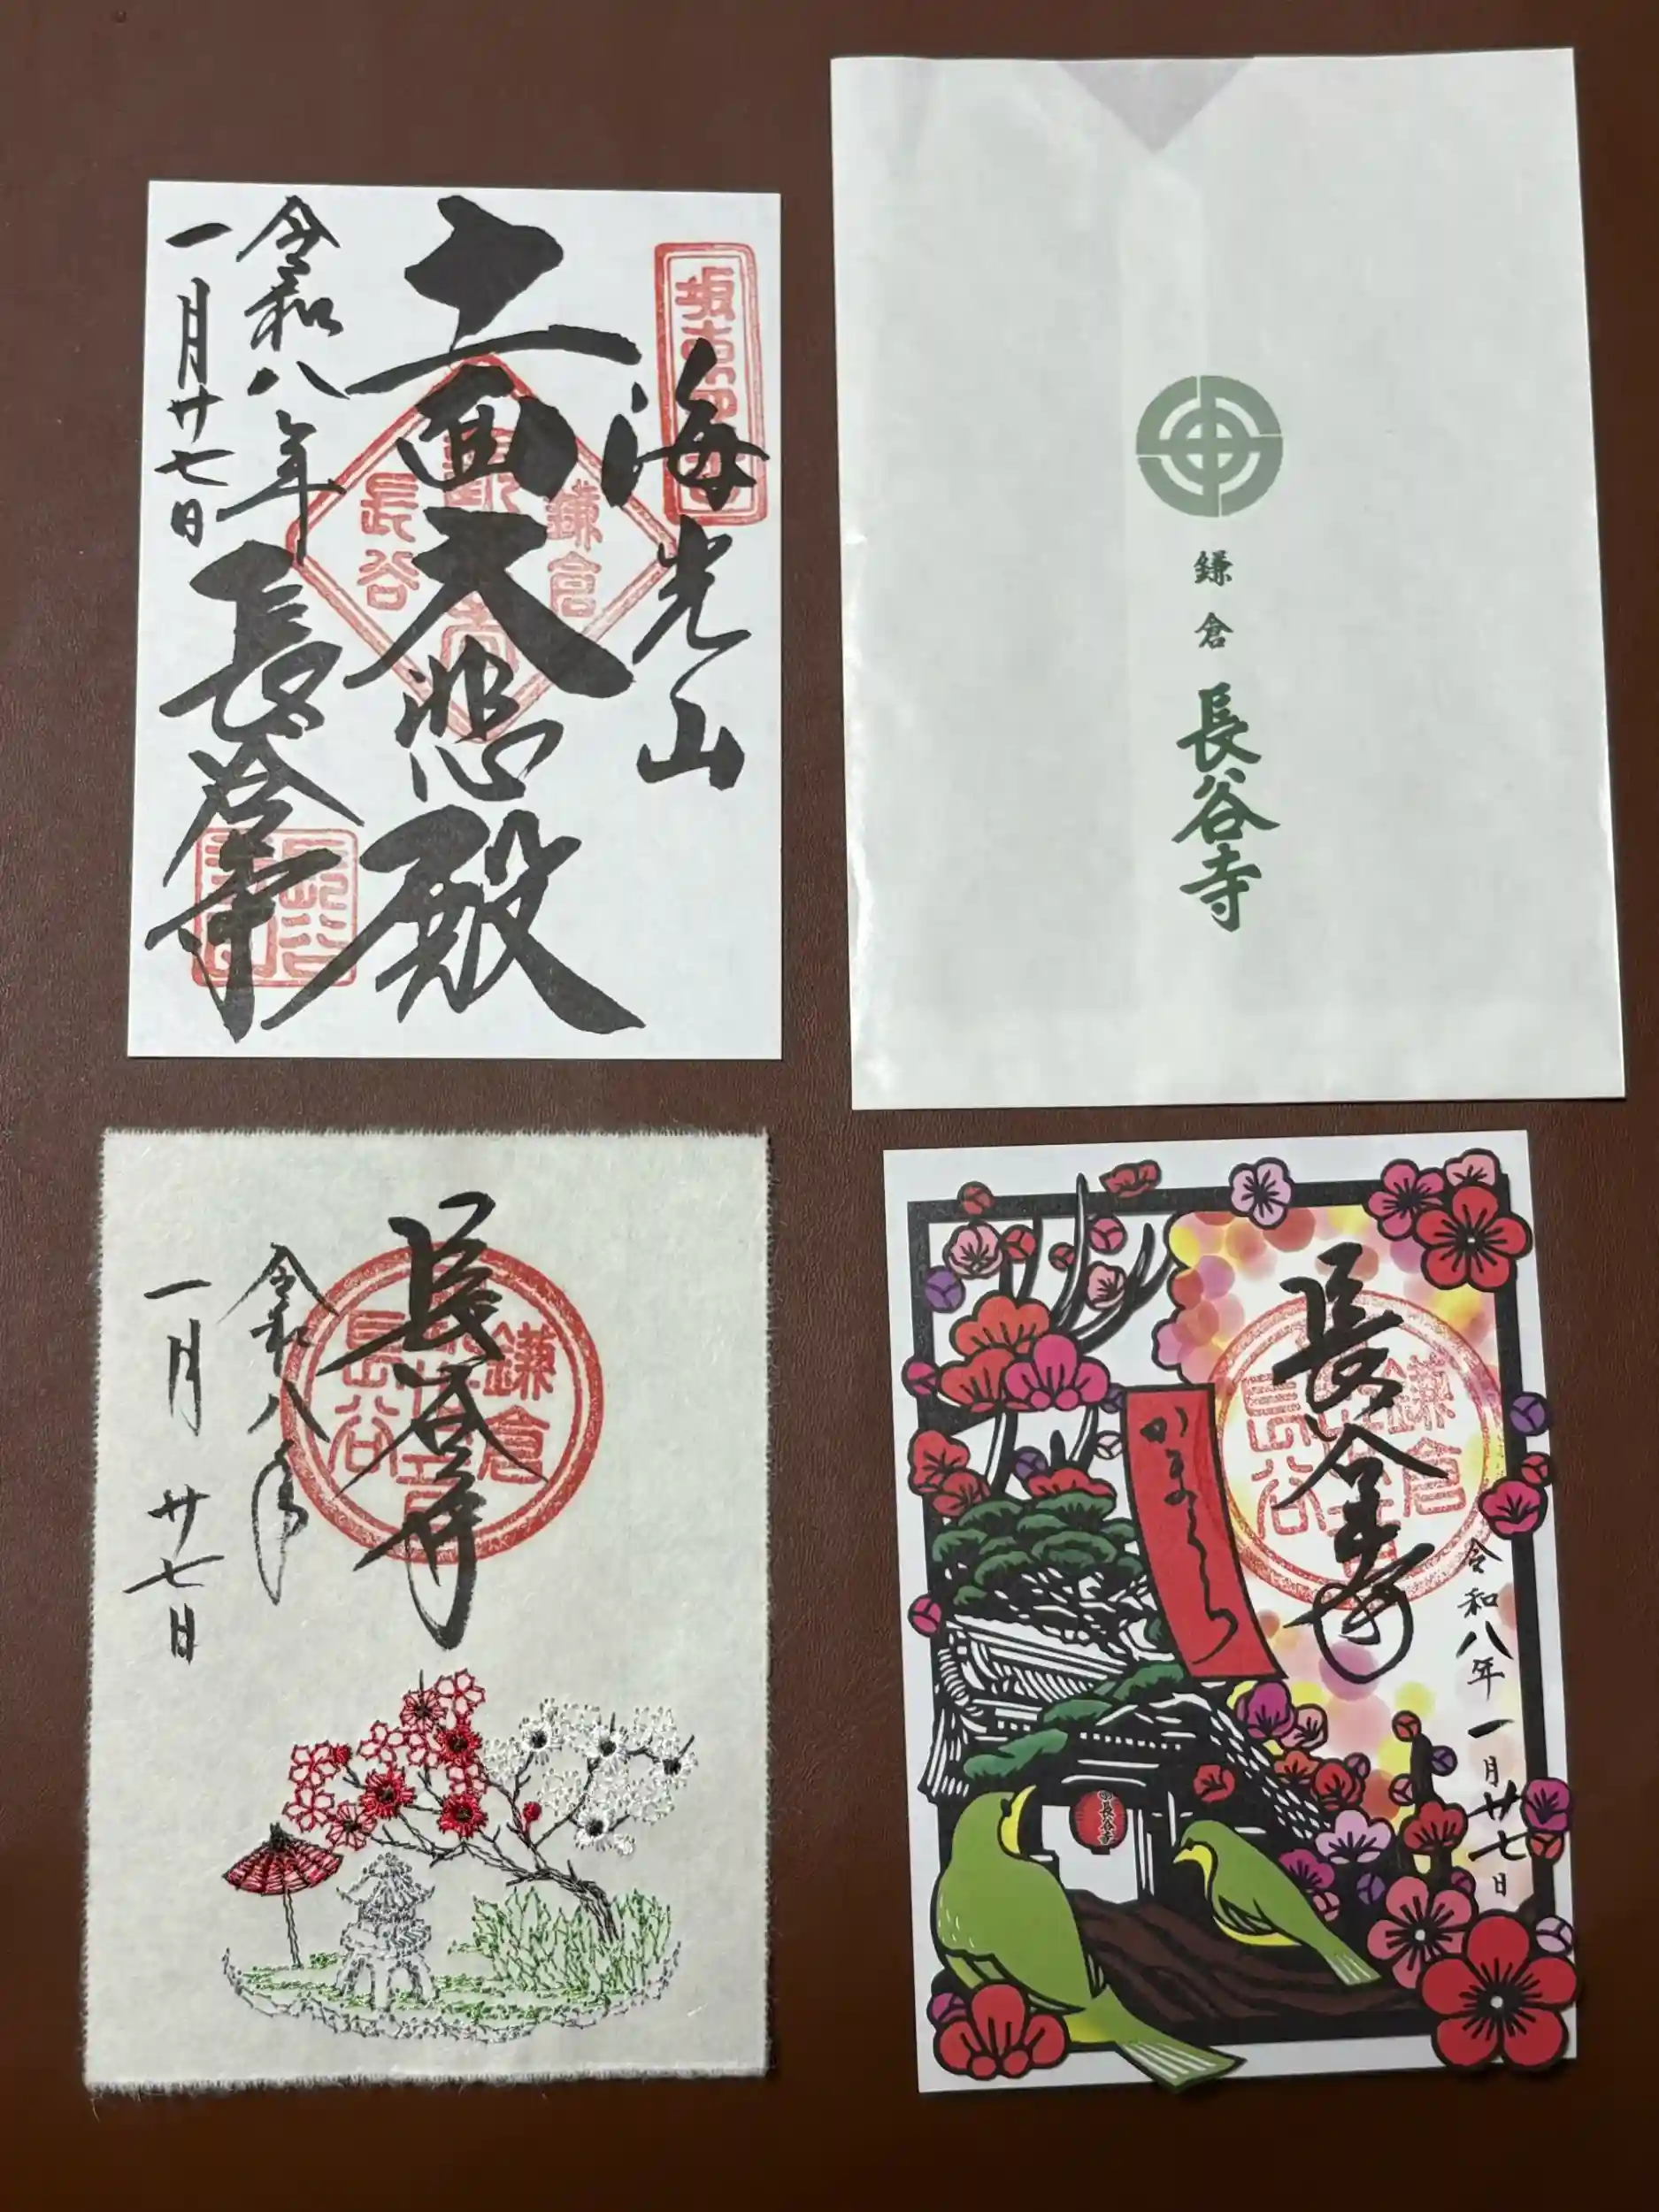 坂東四番
海光山
十一面大悲殿
鎌倉
長谷
令和八年
一月廿七日
長谷寺
鎌倉
長谷寺
長谷寺
鎌倉
長谷
令和八年
一月廿七日
長谷寺
鎌倉
長谷
令和八年一月廿七日
かまくら
長谷寺